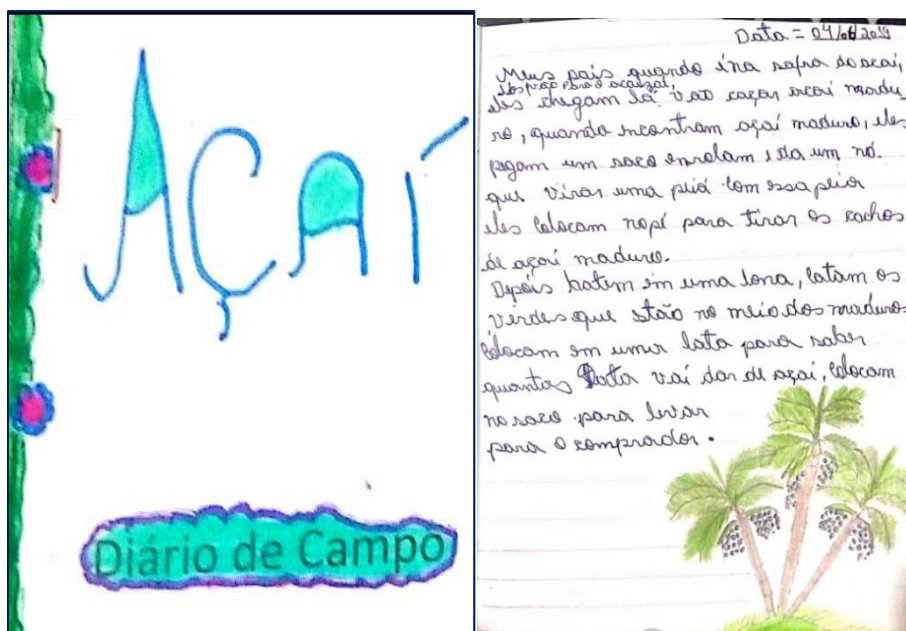 AÇAÍ
Diário de Campo
Data = 04/06/2019
Meus pais quando é na safra do açaí,
eles vão para o açaizal,
eles chegam lá vão caçar açaí madu_
ro, quando incontram açaí maduro, eles
pegam um saco enrolam e da um nó.
que virar uma peia com essa peia
eles colocam nopé para tirar os cachos
de açaí maduro.
Depois batem em uma lona, catam os
verdes que estão no meio dos maduros
colocam em uma lata para saber
quantas lata vai dar de açaí, colocam
no saco para levar
para o comprador.